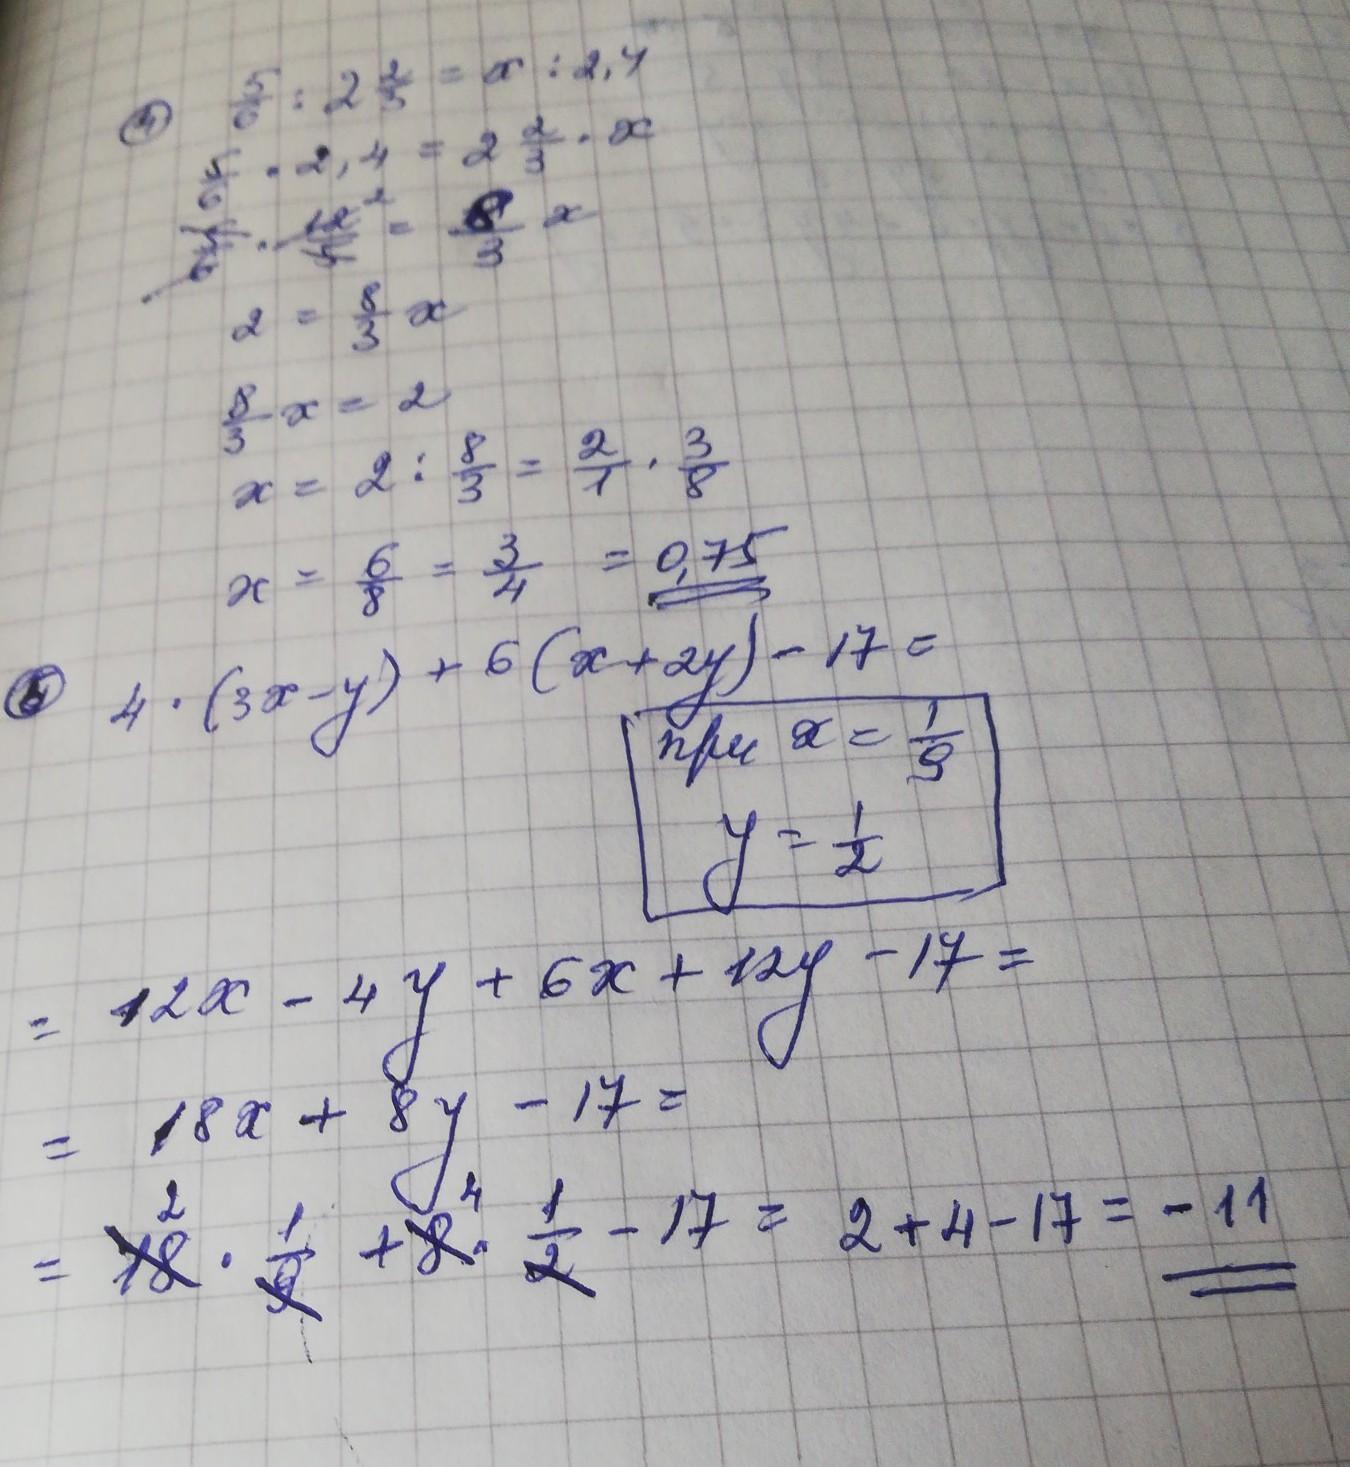 ④ 5/6 : 2 2/3 = x : 2,4
5/6 · 2,4 = 2 2/3 · x
5/6 · 12/5 2 = 8/3 x
2 = 8/3 x
8/3 x = 2
x = 2 : 8/3 = 2/1 · 3/8
x = 6/8 = 3/4 = 0,75
4 · (3x - y) + 6(x + 2y) - 17 =
при x = 1/9
y = 1/2
= 12x - 4y + 6x + 12y - 17 =
= 18x + 8y - 17 =
= 18 2 · 1/9 + 8 4 · 1/2 - 17 = 2 + 4 - 17 = -11